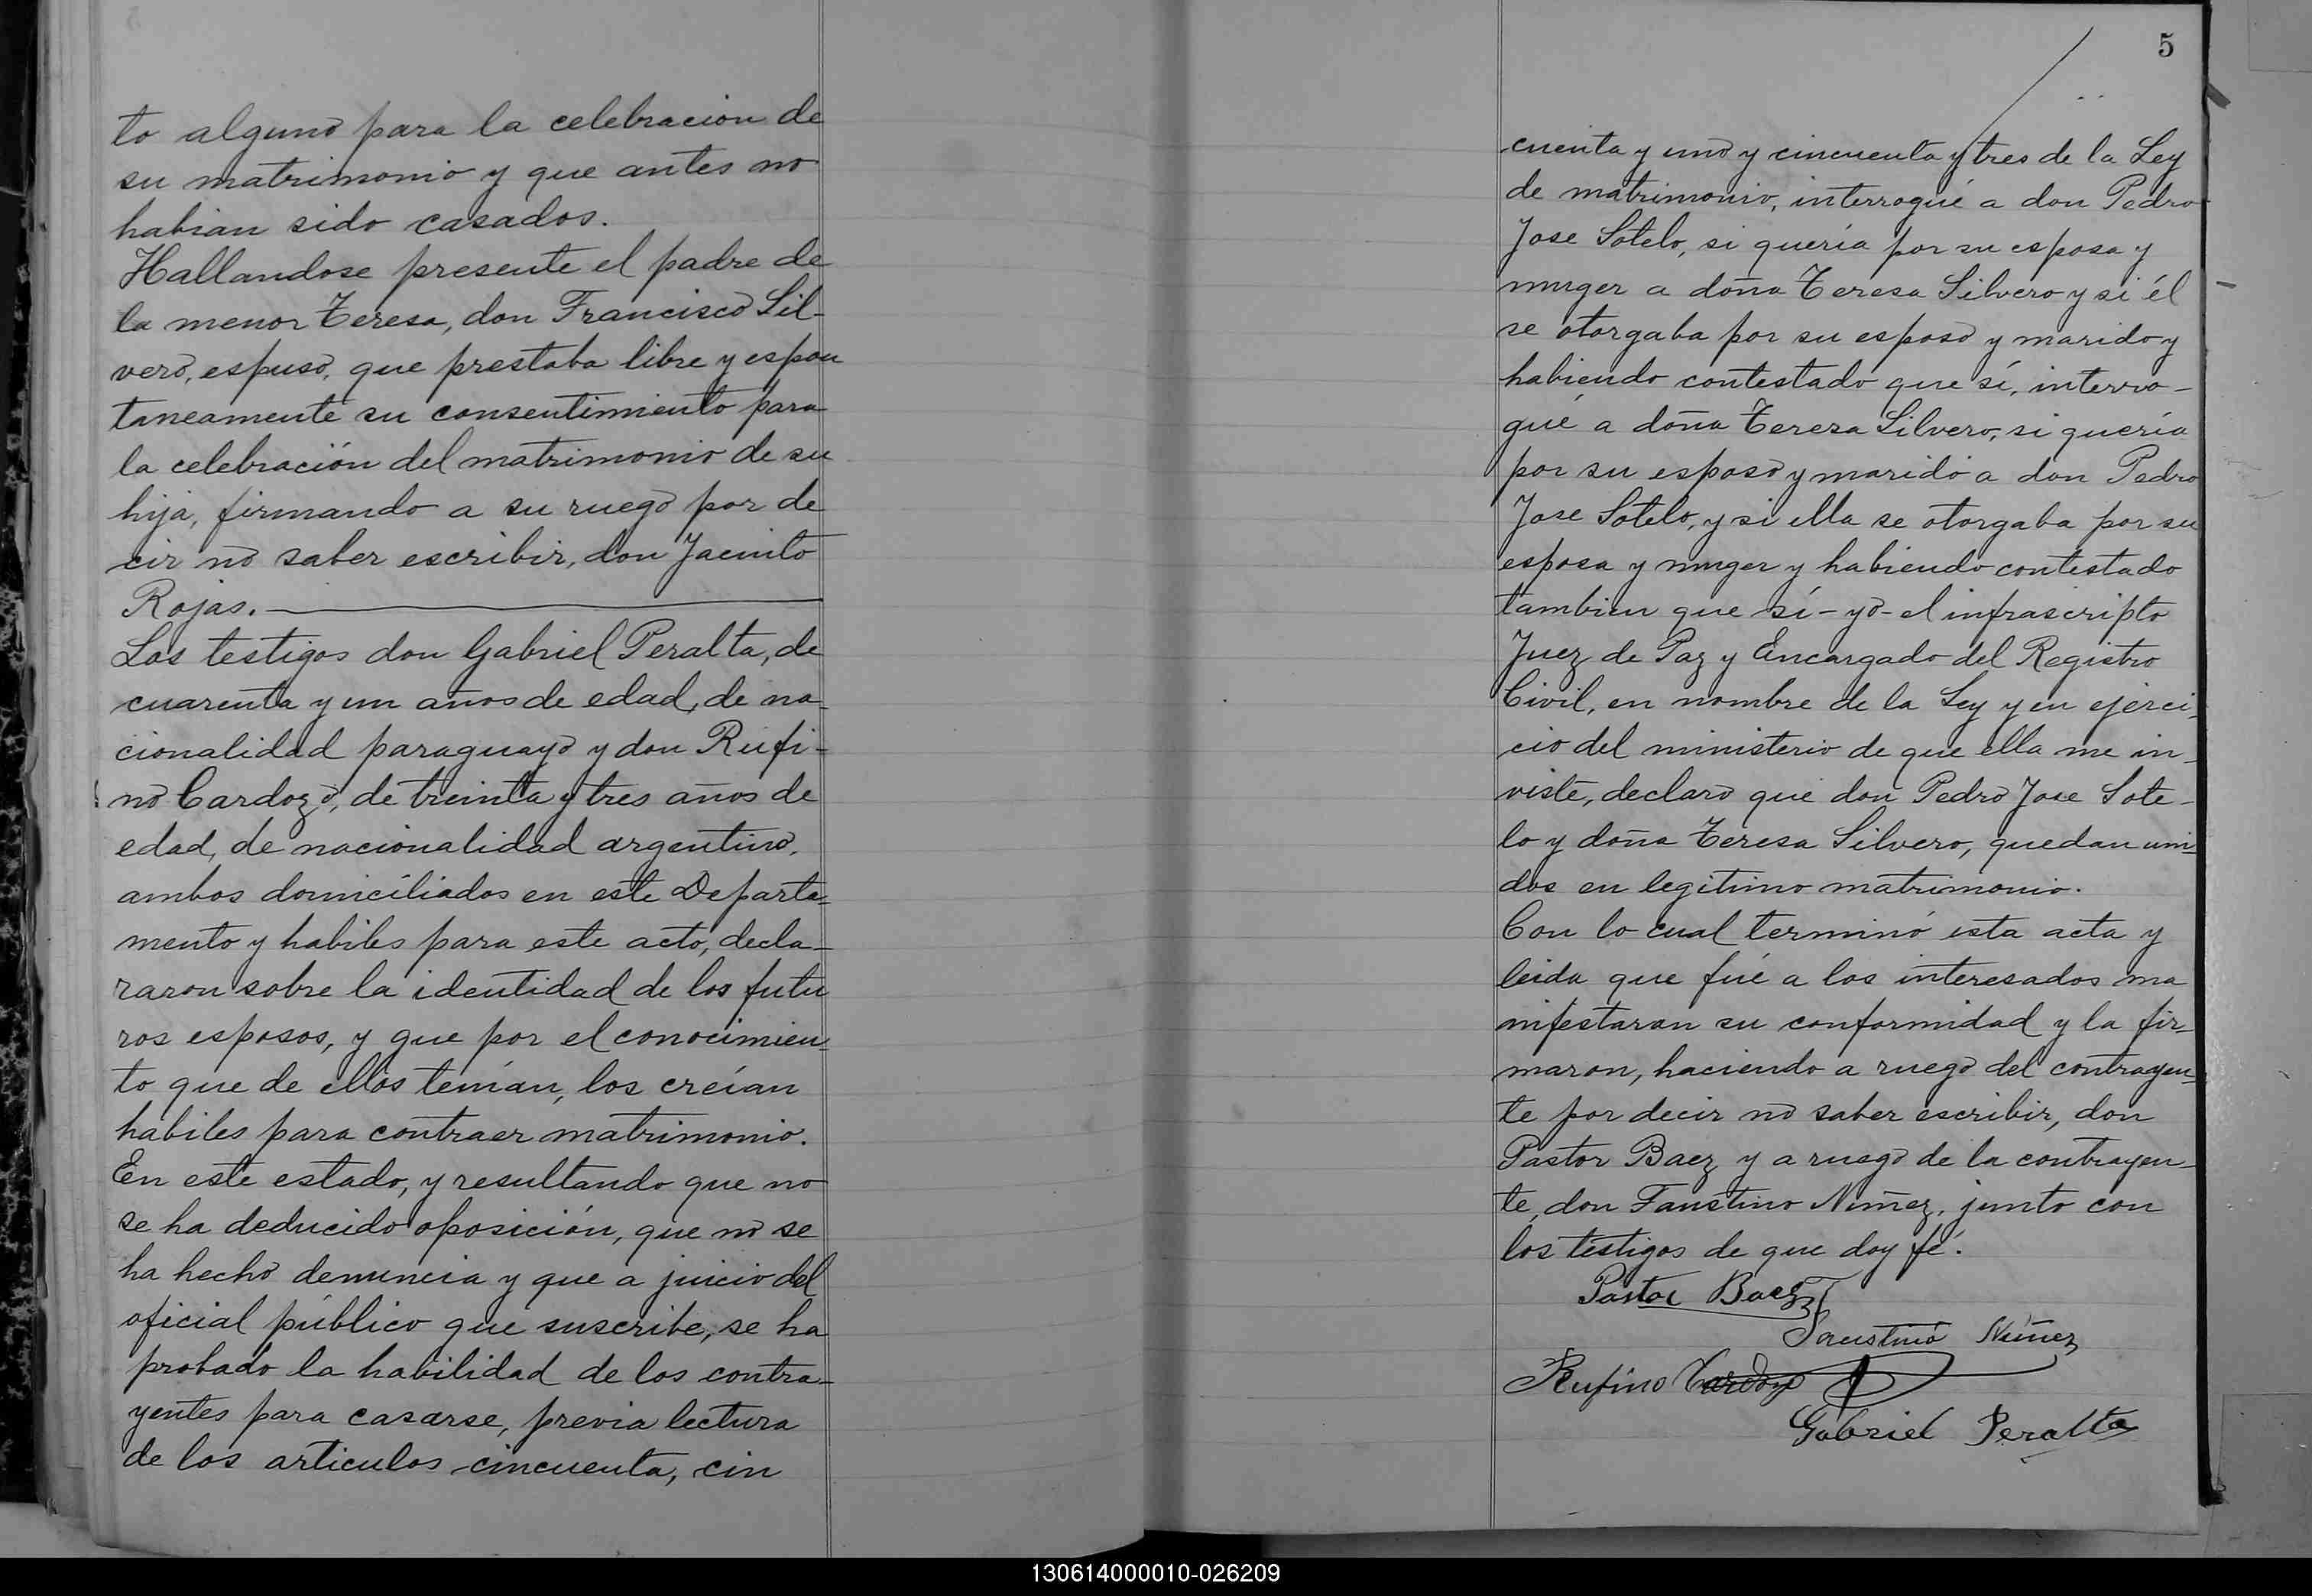 to alguno para la celebracion de
su matrimonio y que antes no
habian sido casados.
Hallandose presente el padre de
la menor Teresa, don Francisco Sil-
vero, espuso, que prestaba libre y espon
taneamente su consentimiento para
la celebración del matrimonio de su
hija, firmando a su ruego por de
cir no saber escribir, don Jacinto
Rojas.
Los testigos don Gabriel Peralta, de
cuarenta y un años de edad, de na-
cionalidad paraguayo y don Rufi-
no Cardozo, de treinta y tres años de
edad, de nacionalidad argentino,
ambos domiciliados en este Departa-
mento y habiles para este acto, decla-
raron sobre la identidad de los futu
ros esposos, y que por el conocimien-
to que de ellos tenían, los creían
habiles para contraer matrimonio.
En este estado, y resultando que no
se ha deducido oposición, que no se
ha hecho denuncia y que a juicio del
oficial público que suscribe, se ha
probado la habilidad de los contra-
yentes para casarse, previa lectura
de los articulos cincuenta, cin
5
cuenta y uno y cincuenta y tres de la Ley
de matrimonio, interrogué a don Pedro
Jose Sotelo, si quería por su esposa y
muger a doña Teresa Silvero y si él
se otorgaba por su esposo y marido y
habiendo contestado que sí, interro-
gué a doña Teresa Silvero, si quería
por su esposo y marido a don Pedro
Jose Sotelo, y si ella se otorgaba por su
esposa y muger y habiendo contestado
tambien que sí - yo - el infrascripto
Juez de Paz y Encargado del Registro
Civil, en nombre de la Ley y en ejerci-
cio del ministerio de que ella me in-
viste, declaro que don Pedro Jose Sote-
lo y doña Teresa Silvero, quedan uni-
dos en legitimo matrimonio.
Con lo cual terminó esta acta y
leida que fué a los interesados ma
nifestaron su conformidad y la fir-
maron, haciendo a ruego del contrayen-
te por decir no saber escribir, don
Pastor Baez y a ruego de la contrayen-
te, don Faustino Nuñez, junto con
los testigos de que doy fé.
Pastor Baez
Faustino Nuñez
Rufino Cardozo
Gabriel Peralta
130614000010-026209